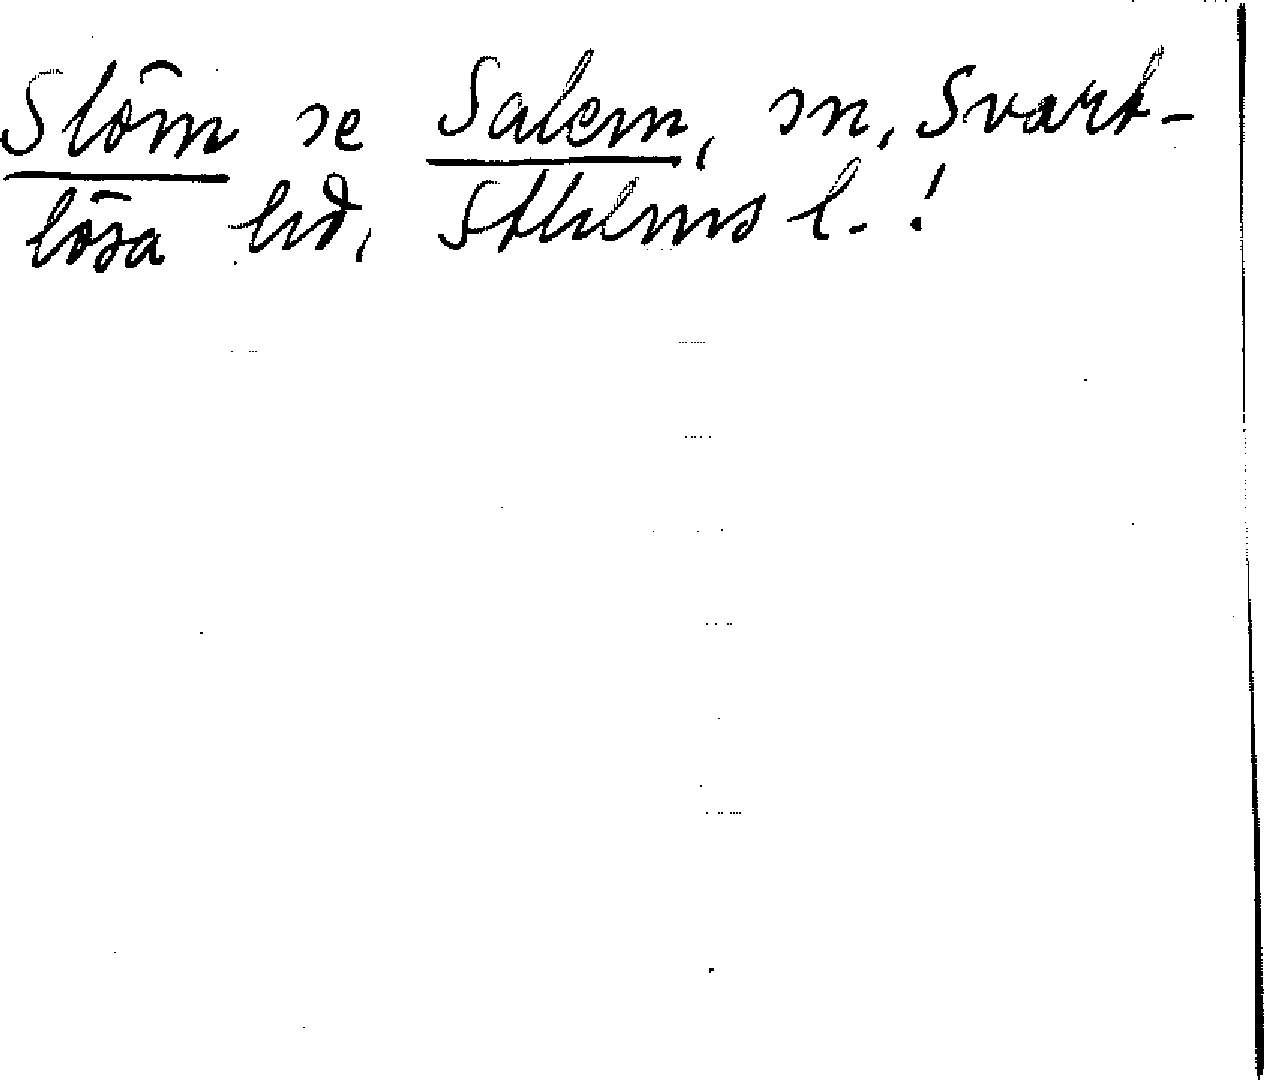 Slöm se Salem, sn, Svart-
lösa hd, Sthlms l. !